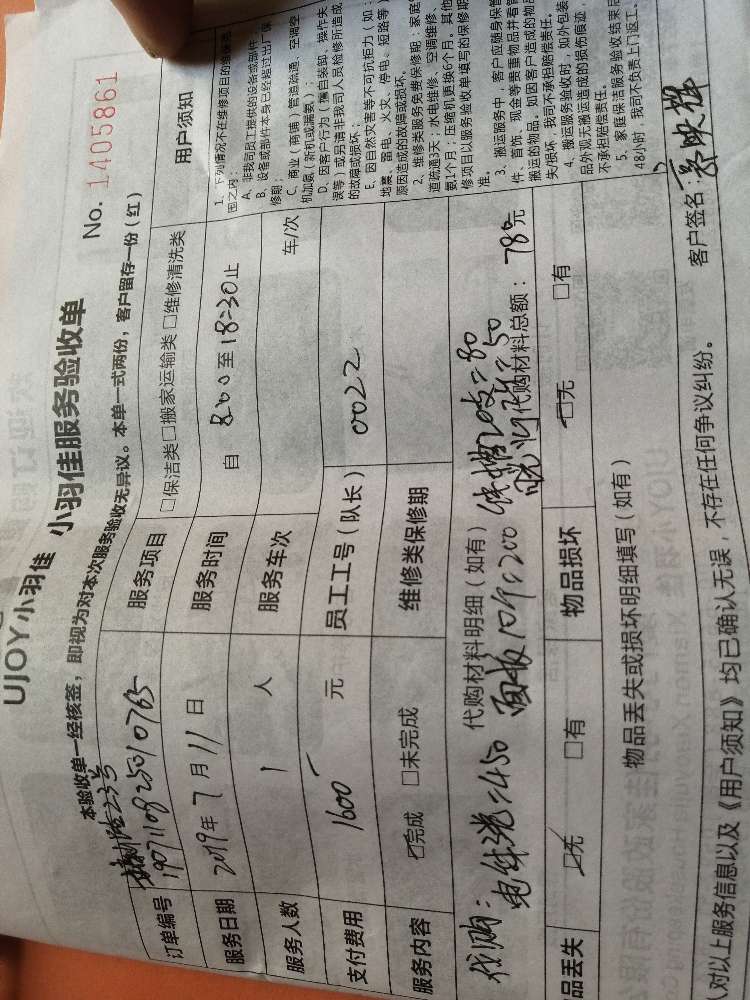 UJOY小羽佳 小羽佳服务验收单 No. 1405861
本验收单一经核签，即视为对本次服务验收无异议。本单一式两份，客户留存一份（红）
订单编号 1907110825010765 服务项目 □保洁类□搬家运输类 □维修清洗类
服务日期 2019年7月11日 服务时间 自 8:00 至 18:30止
服务人数 1 人 服务车次 车/次
支付费用 1600 元 员工工号（队长） 0022
服务内容 ☑完成 □未完成 维修类保修期
代购材料明细（如有）
代购： 电线 =450 面板10个=200 =80
=50 代购材料总额： 780元
品丢失 ☑无 □有 物品损坏 ☑无 □有
物品丢失或损坏明细填写（如有）
对以上服务信息以及《用户须知》均已确认无误，不存在任何争议纠纷。 客户签名：
用户须知
1、下列情况不在维修项目的维保范
围之内：
A、非我司员工提供的设备或部件
B、设备或部件本身已经超过出厂保
修期；
C、商业（商铺）管道疏通、空调空
机加氨（新机或漏氨）；
D、因客户行为（擅自装卸、操作失
误等）或另请非我司人员检修所造成
的故障或损坏；
E、因自然灾害等不可抗拒力（如：
地震、雷电、火灾、停电、短路等）
原因造成的故障或损坏。
2、维修类服务免费保修期：家庭
道疏通3天；水电维修、空调维修、
氨1个月；压缩机更换6个月。其他
修项目以服务验收单填写的保修期
准。
3、搬运服务中，客户应随身保管
件、首饰、现金等贵重物品并看管
搬运的物品。如因客户造成的物品
失/损坏，我司不承担赔偿责任。
4、搬运服务验收时，如外包装
品外观无搬运造成的损伤痕迹，
不承担赔偿责任。
5、家庭保洁服务验收结束后
48小时，我司不负责上门返工。